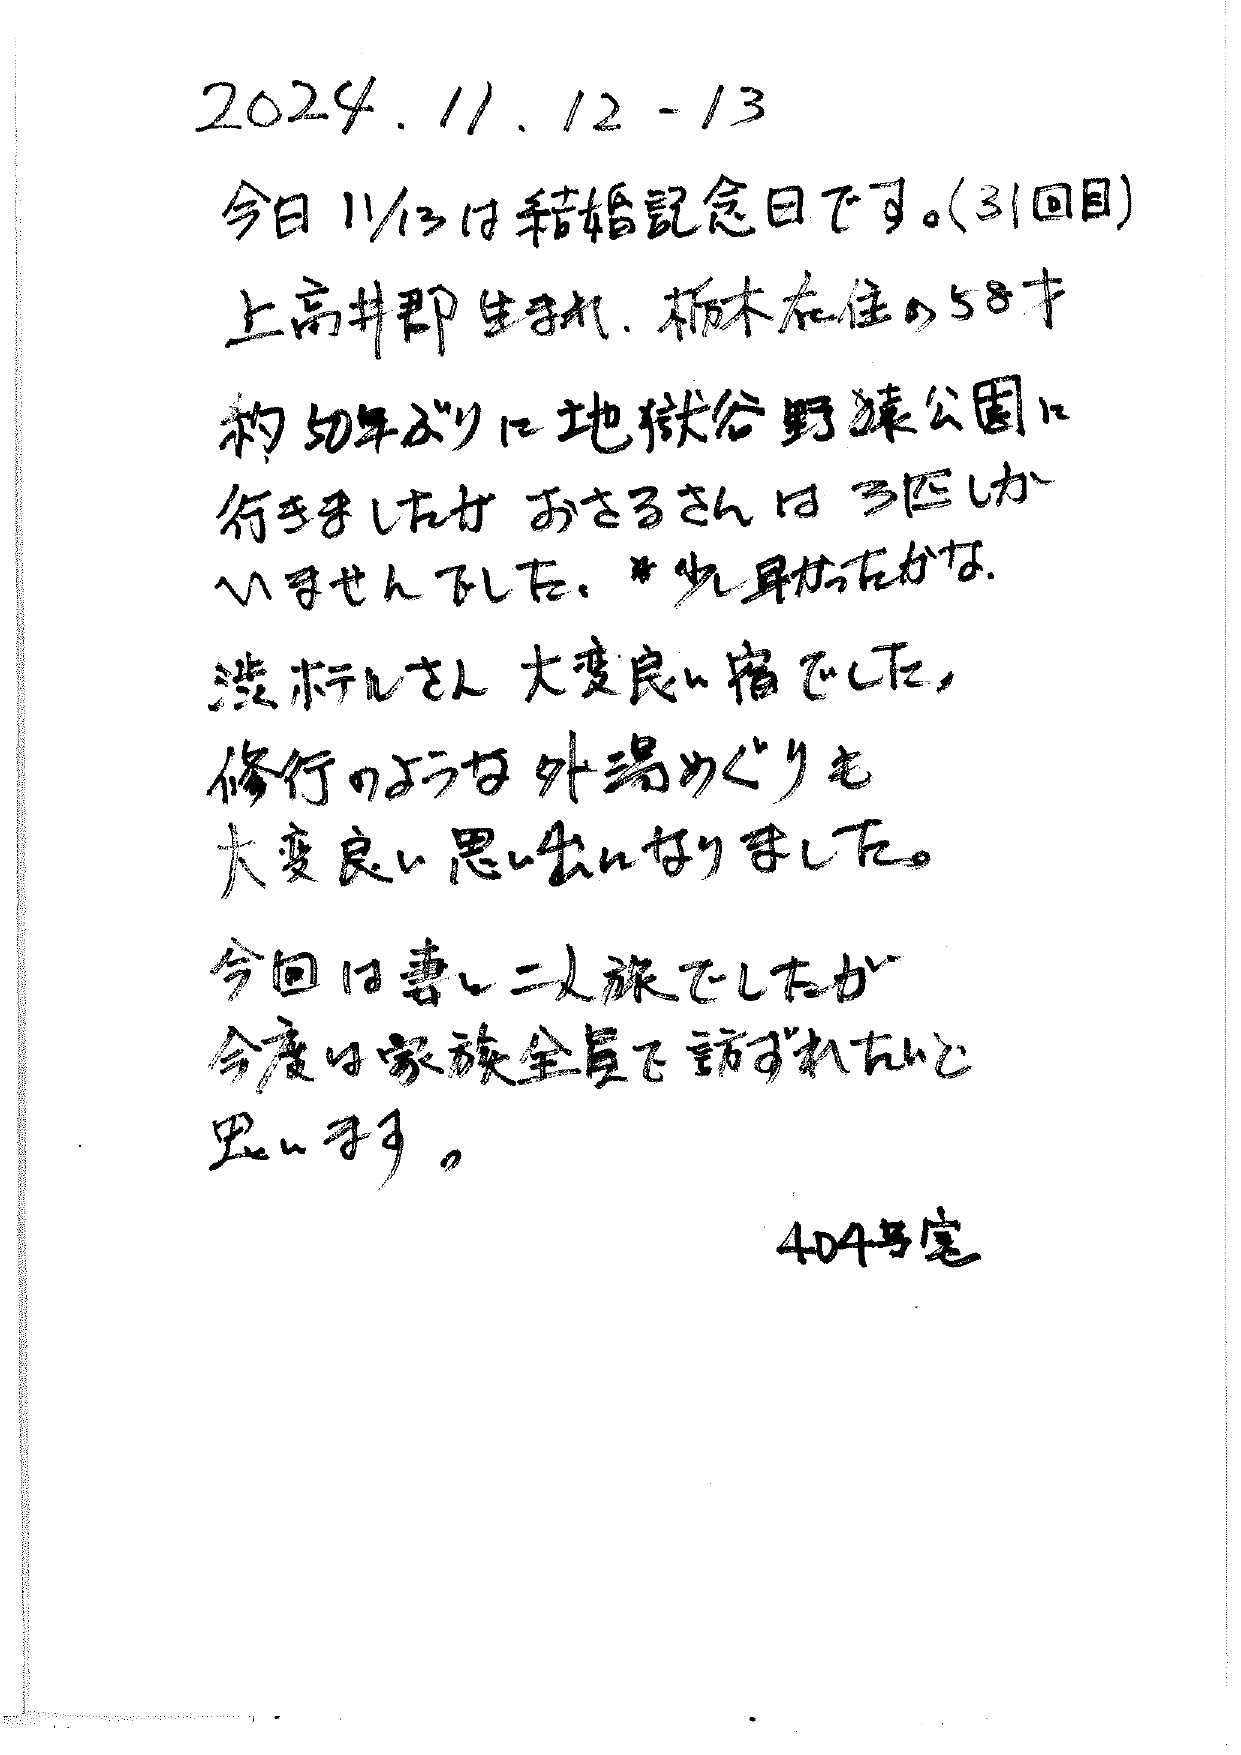 2024.11.12-13
今日11/13は結婚記念日です。(31回目)
上高井郡生まれ、栃木在住の58才
約50年ぶりに地獄谷野猿公園に
行きましたが おさるさんは 3匹しか
いませんでした。*少し早かったかな。
渋ホテルさん 大変良い宿でした、
修行のような外湯めぐりも
大変良い思い出になりました。
今回は妻と二人旅でしたが
今度は家族全員で訪ずれたいと
思います。
404号室